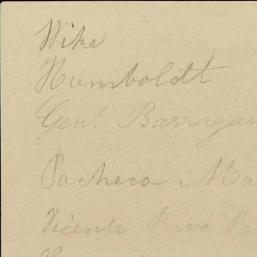 Wike
Humboldt
Genl. Barragan
Pacheco Ma
Vicente